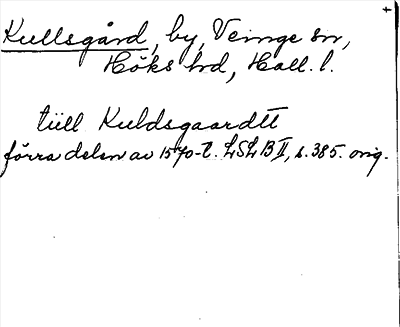 Kullsgård, by, Veinge sn,
Höks hd, Hall. l.
tiill Kuldsgaardtt
förra delen av 1570-t. LSLB II, s. 385. orig.